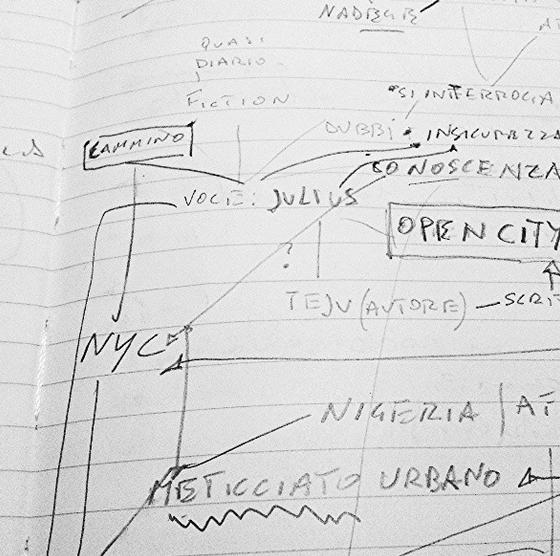 NADEGE
QUASI
DIARIO
FICTION
SI INTERROGA
DUBBI
INSICUREZZA
CAMMINO
CONOSCENZA
VOCE: JULIUS
OPEN CITY
?
TEJU (AUTORE) — SCRI
NYC
NIGERIA | AT
METICCIATO URBANO